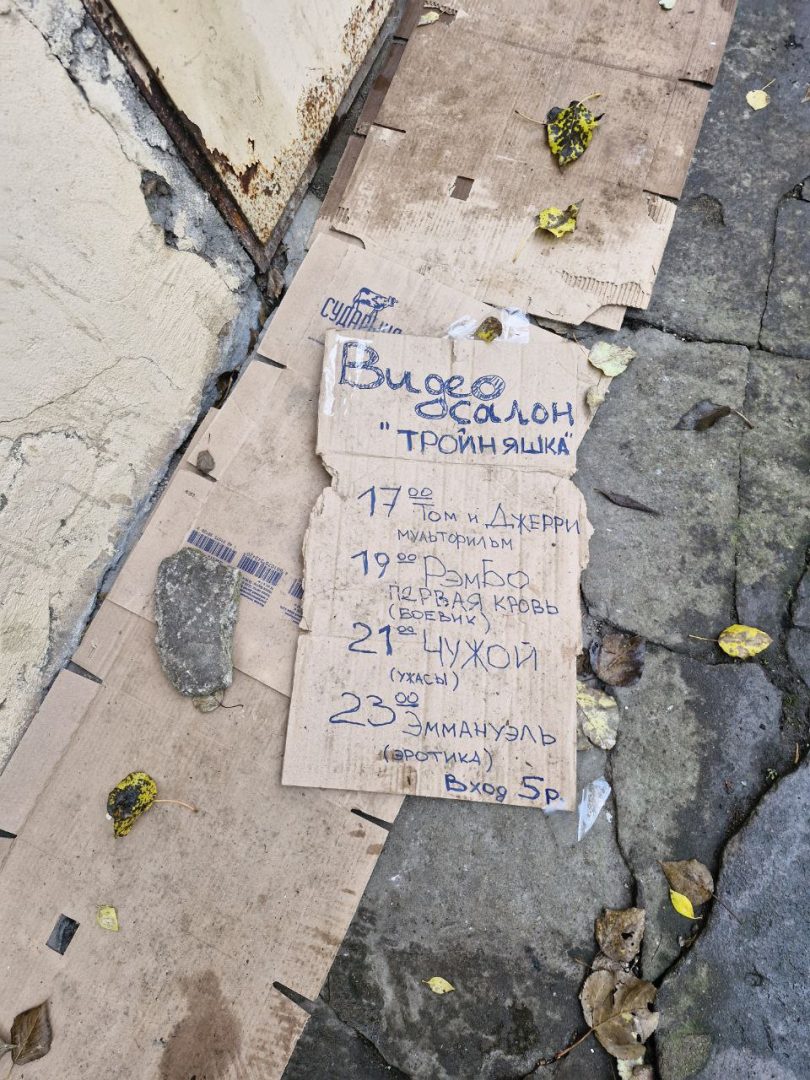 Видео
салон
"ТРОЙНЯШКА"
17⁰⁰ Том и ДЖЕРРИ
мультфильм
19⁰⁰ РэмБо
ПЕРВАЯ КРОВЬ
(БОЕВИК)
21⁰⁰ ЧУЖОЙ
(УЖАСЫ)
23⁰⁰ Эммануэль
(ЭРОТИКА)
Вход 5р.